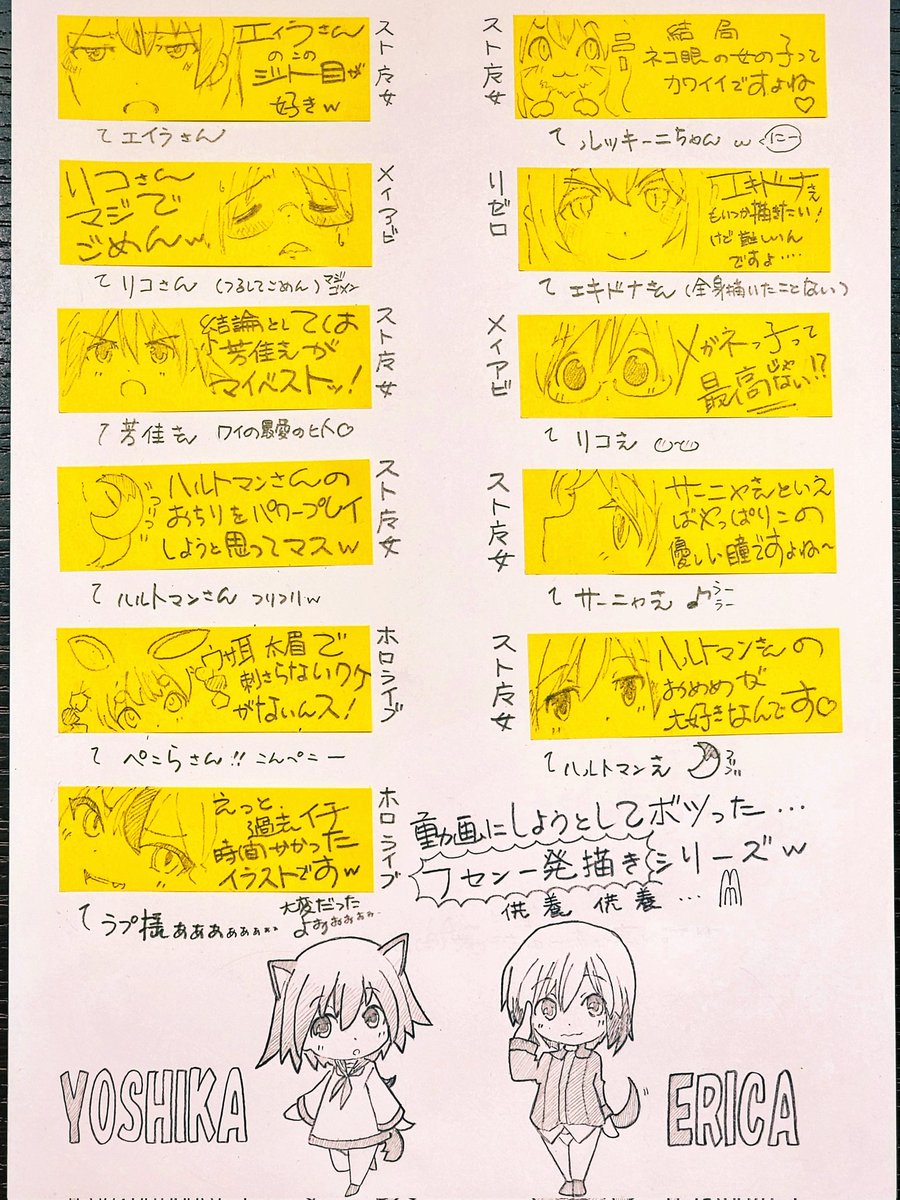 エイラさん
のこの
ジト目が
好きw
スト魔女
て エイラさん
リコさん
マジで
ごめんw
メイアビ
て リコさん (つるしてごめん) マジゴメン
結論としては
芳佳さんが
マイベストッ!
スト魔女
て 芳佳さん ワイの最愛のヒト♡
ハルトマンさんの
おちりをパワープレイ
しようと思ってマスw
フリフリ
スト魔女
て ハルトマンさん フリフリw
ウサ耳 太眉で
刺さらないワケ
がないんス!
ホロライブ
て ぺこらさん!! こんぺこー
えっと、
過去イチ
時間かかった
イラストですw
ホロライブ
て ラプ様ぁぁぁぁぁぁ 大変だった
よぉぉぉぉぉ
スト魔女
結局
ネコ眼の女の子って
カワイイですよね
♡
て ルッキーニちゃん w にー
リゼロ
エキドナさん
もいつか描きたい!
けど難しいん
ですよ‥‥
て エキドナさん (全身描いたことない)
メイアビ
メガネっ子って
最高じゃない!?
て リコさん
スト魔女
サーニャさんといえ
ばやっぱりこの
優しい瞳ですよね〜
て サーニャさん ♪ラーラー
スト魔女
ハルトマンさんの
おめめが
大好きなんです♡
て ハルトマンさん フリフリ
動画にしようとしてボツった…
フセン一発描きシリーズw
供養 供養 …
YOSHIKA
ERICA